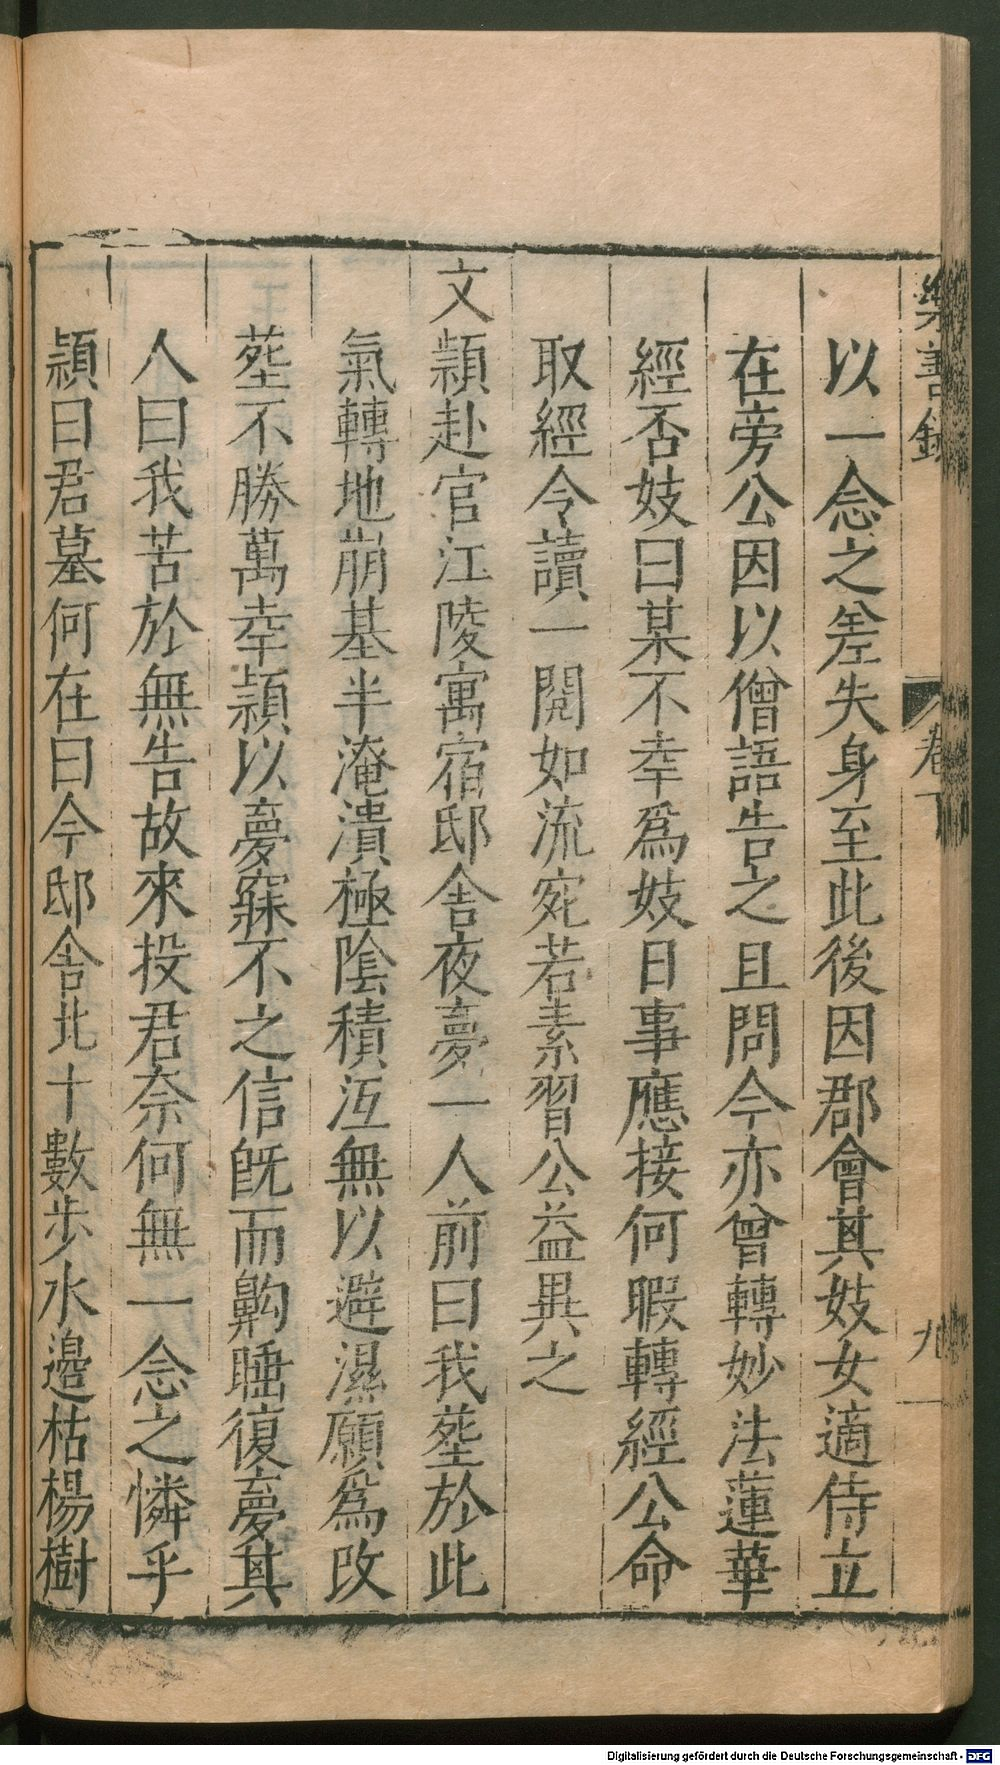 樂善録
卷下
九
以一念之差失身至此後因郡會其妓女適侍立
在旁公因以僧語告之且問今亦曾轉妙法蓮華
經否妓曰某不幸爲妓日事應接何暇轉經公命
取經令讀一閱如流宛若素習公益異之
文頴赴官江陵寓宿邸舍夜夢一人前曰我塟於此
氣轉地崩基半淹潰極陰積沍無以避濕願爲改
塟不勝萬幸頴以夢寐不之信旣而齁睡復夢其
人曰我苦於無告故來投君奈何無一念之憐乎
頴曰君墓何在曰今邸舍北十數步水邉枯楊樹
Digitalisierung gefördert durch die Deutsche Forschungsgemeinschaft - DFG